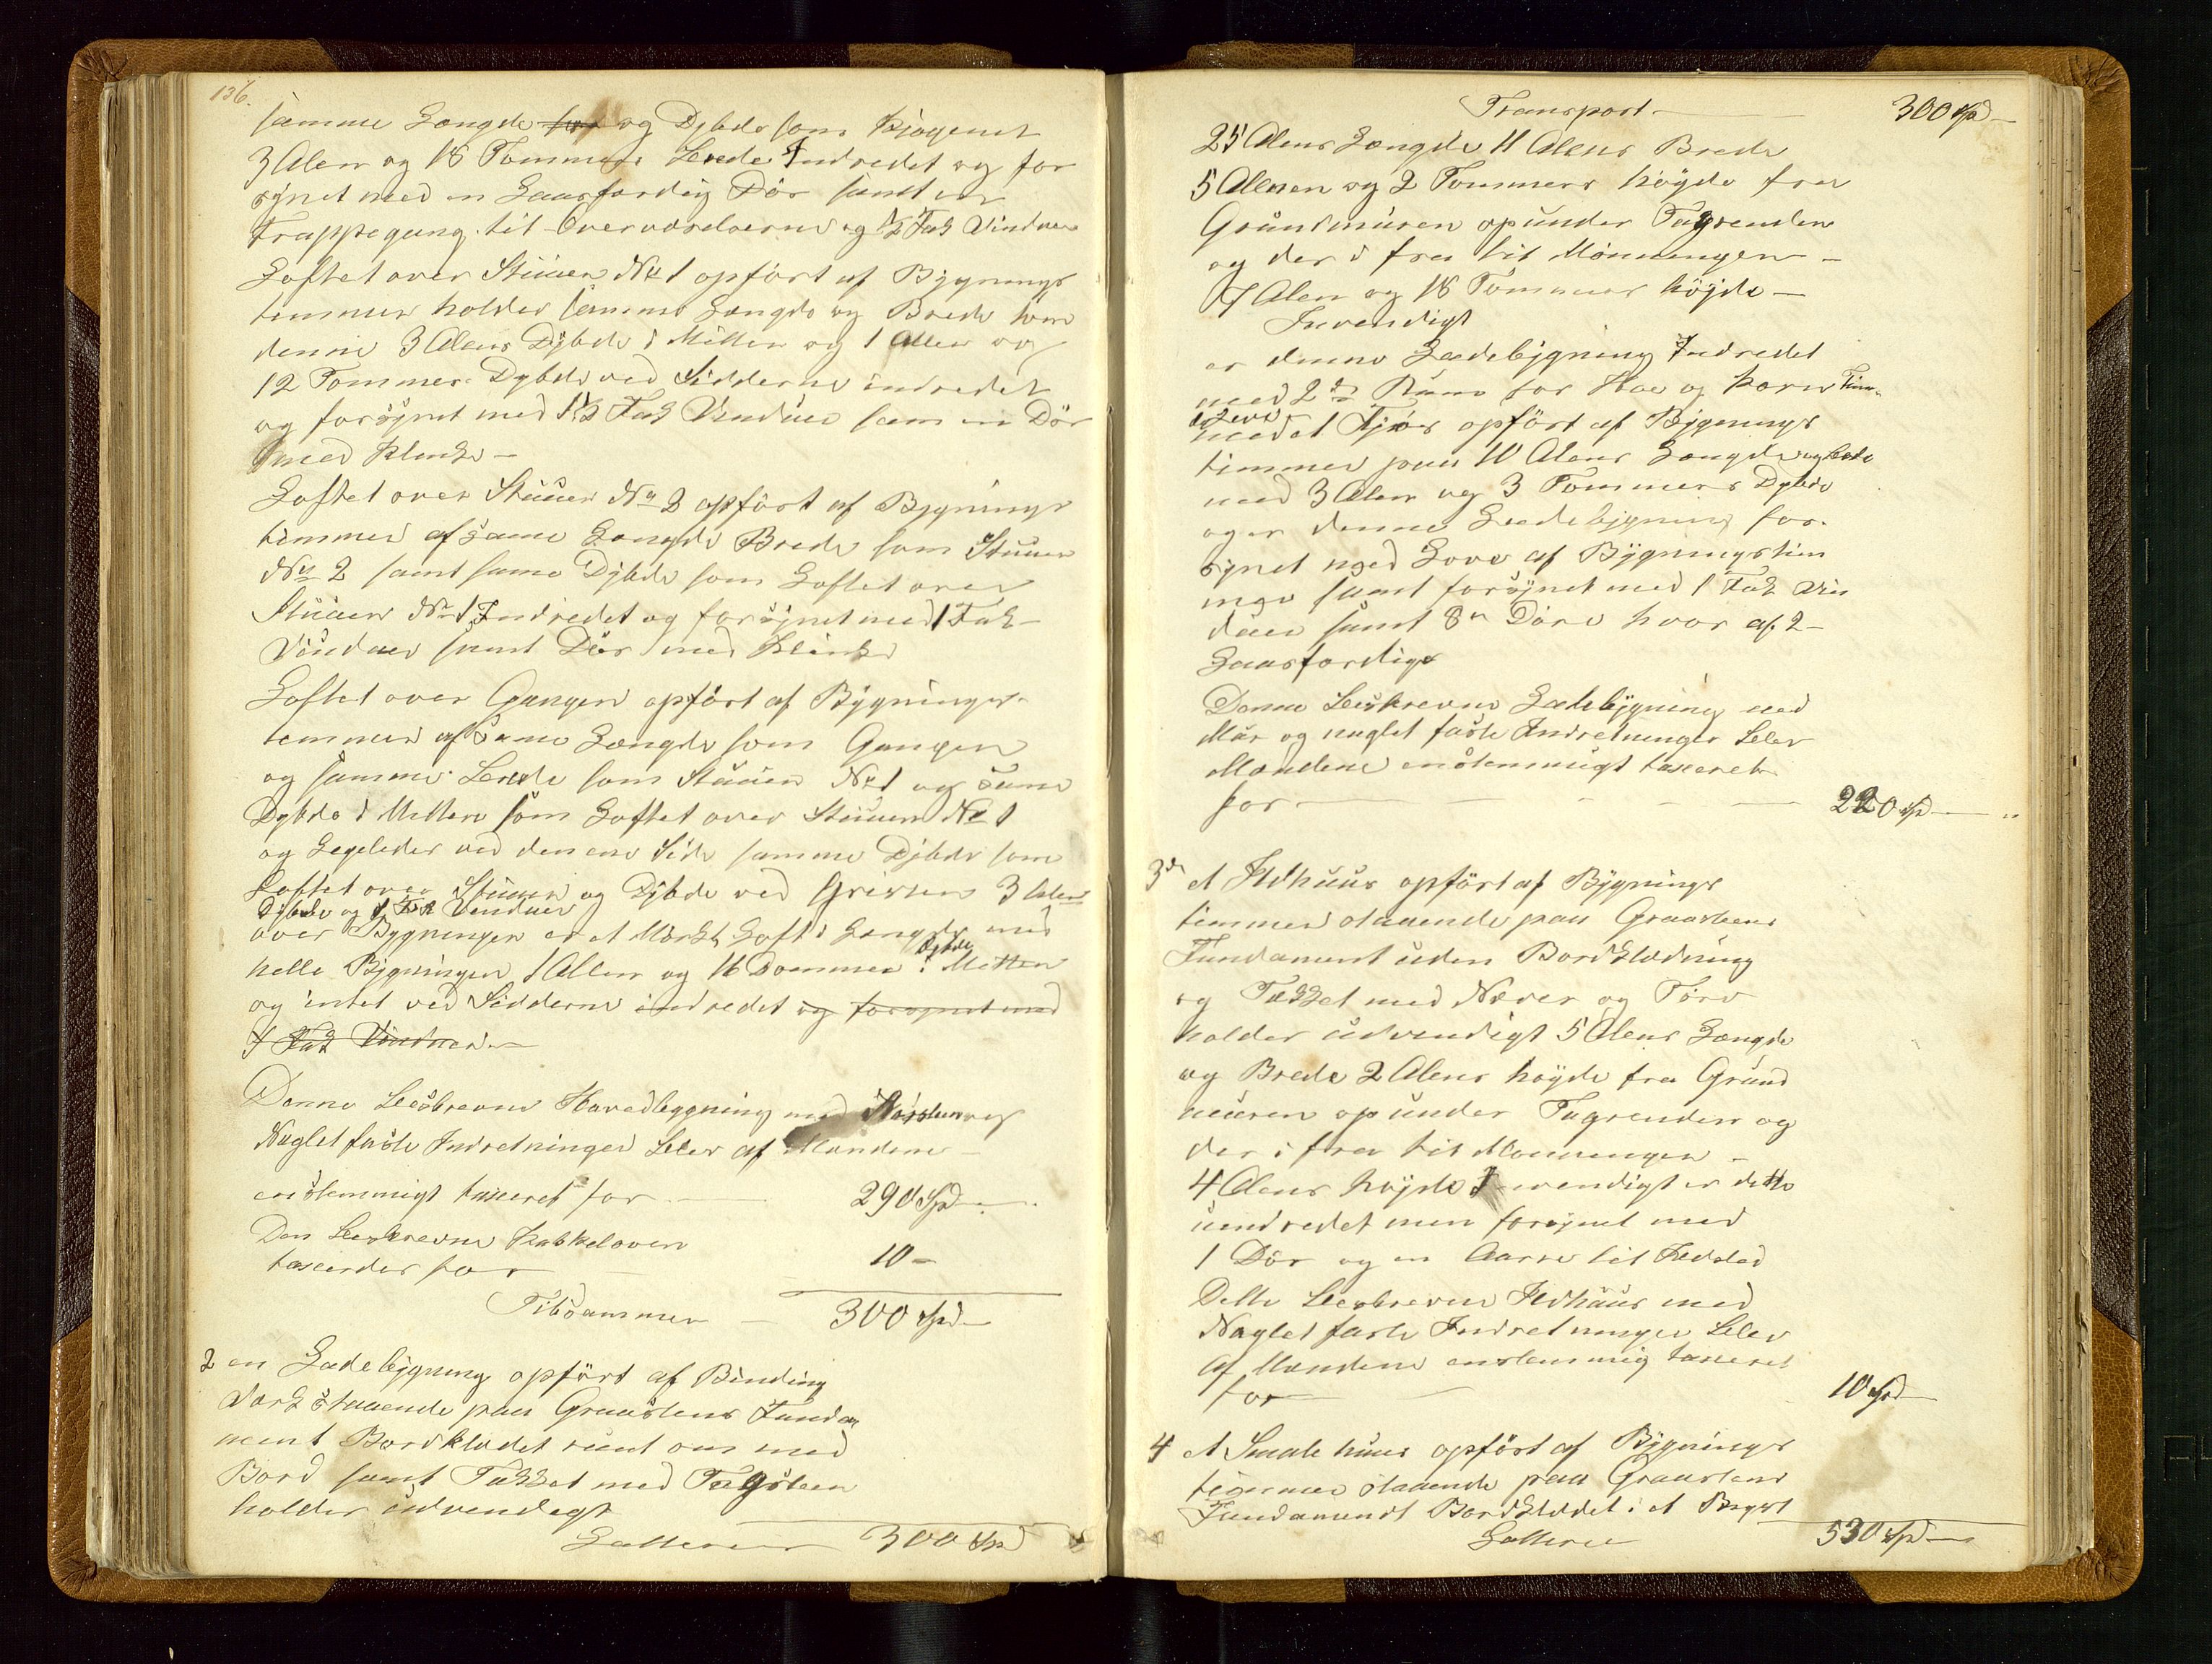 136.
samme Længde for og Dybde som Kjøgenet
3 Alen og 18 Tommers brede Indredet og for
synet med en Laasfærdig Dör samt en
Trappegang til Overværelserne og ½ Fak Vinduer
Loftet over Stuuen No 1 opfört af Bygnings
timmer holder samme Længde og Brede som
denne 3 Alens Dybde i Mitten og 1 Allen og
12 Tommers Dybde ved Sidderne indredet
og forsynet med 1½ Fak Vinduer sam en Dör
med Klinke —
Loftet over Stuuen No 2 opfört af Bygnings
timmer af same Længde Brede som Stuuen
No 2 samt same Dybde som Loftet over
Stuuen No 1 Indredet og forsynet med 1 Fak
Vinduer samt Dör med Klinke
Loftet over Gangen opfört af Bygnings-
temmer af same Længde som Gangen
og samme brede som Stuuen No 1 og same
Dybde i Mitten som Loftet over Stuuen No 1
og Legeledes ved den ene Side samme Dybde som
Loftet over Stuuen og Dybde ved 3 Alen
Dybde og 1 Fak Venduer
over Bygningen er et Mörkt Loft i Længde med
helle Bygningen 1 Allen og 16 Dommer Dybde i Mitten
og intet ved Sidderne indredet og forsynet med
1 Fak Vinduer —
Denne beskrevne Havedbygning med Skorsteen og
Naglet faste Indretninger blev af Mændene
enstemmigt taxeret for — 290 Spd —
Den beskrevne Kakkeloven
taxerder for 10 —
Tilsammen — 300 Spd —
2 en Ladebygning opfört af Binding
værk staaende paa Graastens Funda
ment Bordklædet runt om med
Bord samt Tækket med Tagsteen
holder udvendegt
Latterer 300 Spd
Transport — 300 Spd —
25 Alens Længde 11 Alens Brede
5 Alenen og 2 Tommers höyde fra
Grundmuren op under Tagrenden
og der i fra til Mönnengen —
7 Alen og 18 Tommers höjde —
Invendigt
er denne Ladebygning Indredet
med 2de Rum for Höe og Korn
med et Fjös opfört af Bygnings
timmer paa 10 Alens Længde og brede
med 3 Alen og 3 Tommers Dybde
og er denne Ladebygning for-
synet med Love af Bygningstim
mer samt forsynet med 1 Fak Vin
duer samt 8te Döre hvor af 2 —
Laasfærdige
Denne beskrevne Ladebygning med
Mur og naglet faste Indretninger blev
Mændene enstemmigt taxeret
for — 220 Spd —
3de et Ildhuus opfört af Bygnings
timmer staaende paa Graasteens
Fundament uden Bordklædning
og Tækket med Næver og Törv
holder udvendigt 5 Alens Længde
og Brede 2 Alens höyde fra Grund
muren op under Tagrenden og
der i fra til Mönnengen —
4 Alens höyde Invendigt er dette
uindredet men forsynet med
1 Dör og en Aarre til Ildsted
Dette beskreven Ildhuus med
Naglet faste Indretninger blev
af Mændene enstemmig taxeret
for — 10 Spd —
4 et Smale huus opfört af Bygnings
timmer staaende paa Graastens
Fundament Bordklædet i et
Latterer 530 Spd —